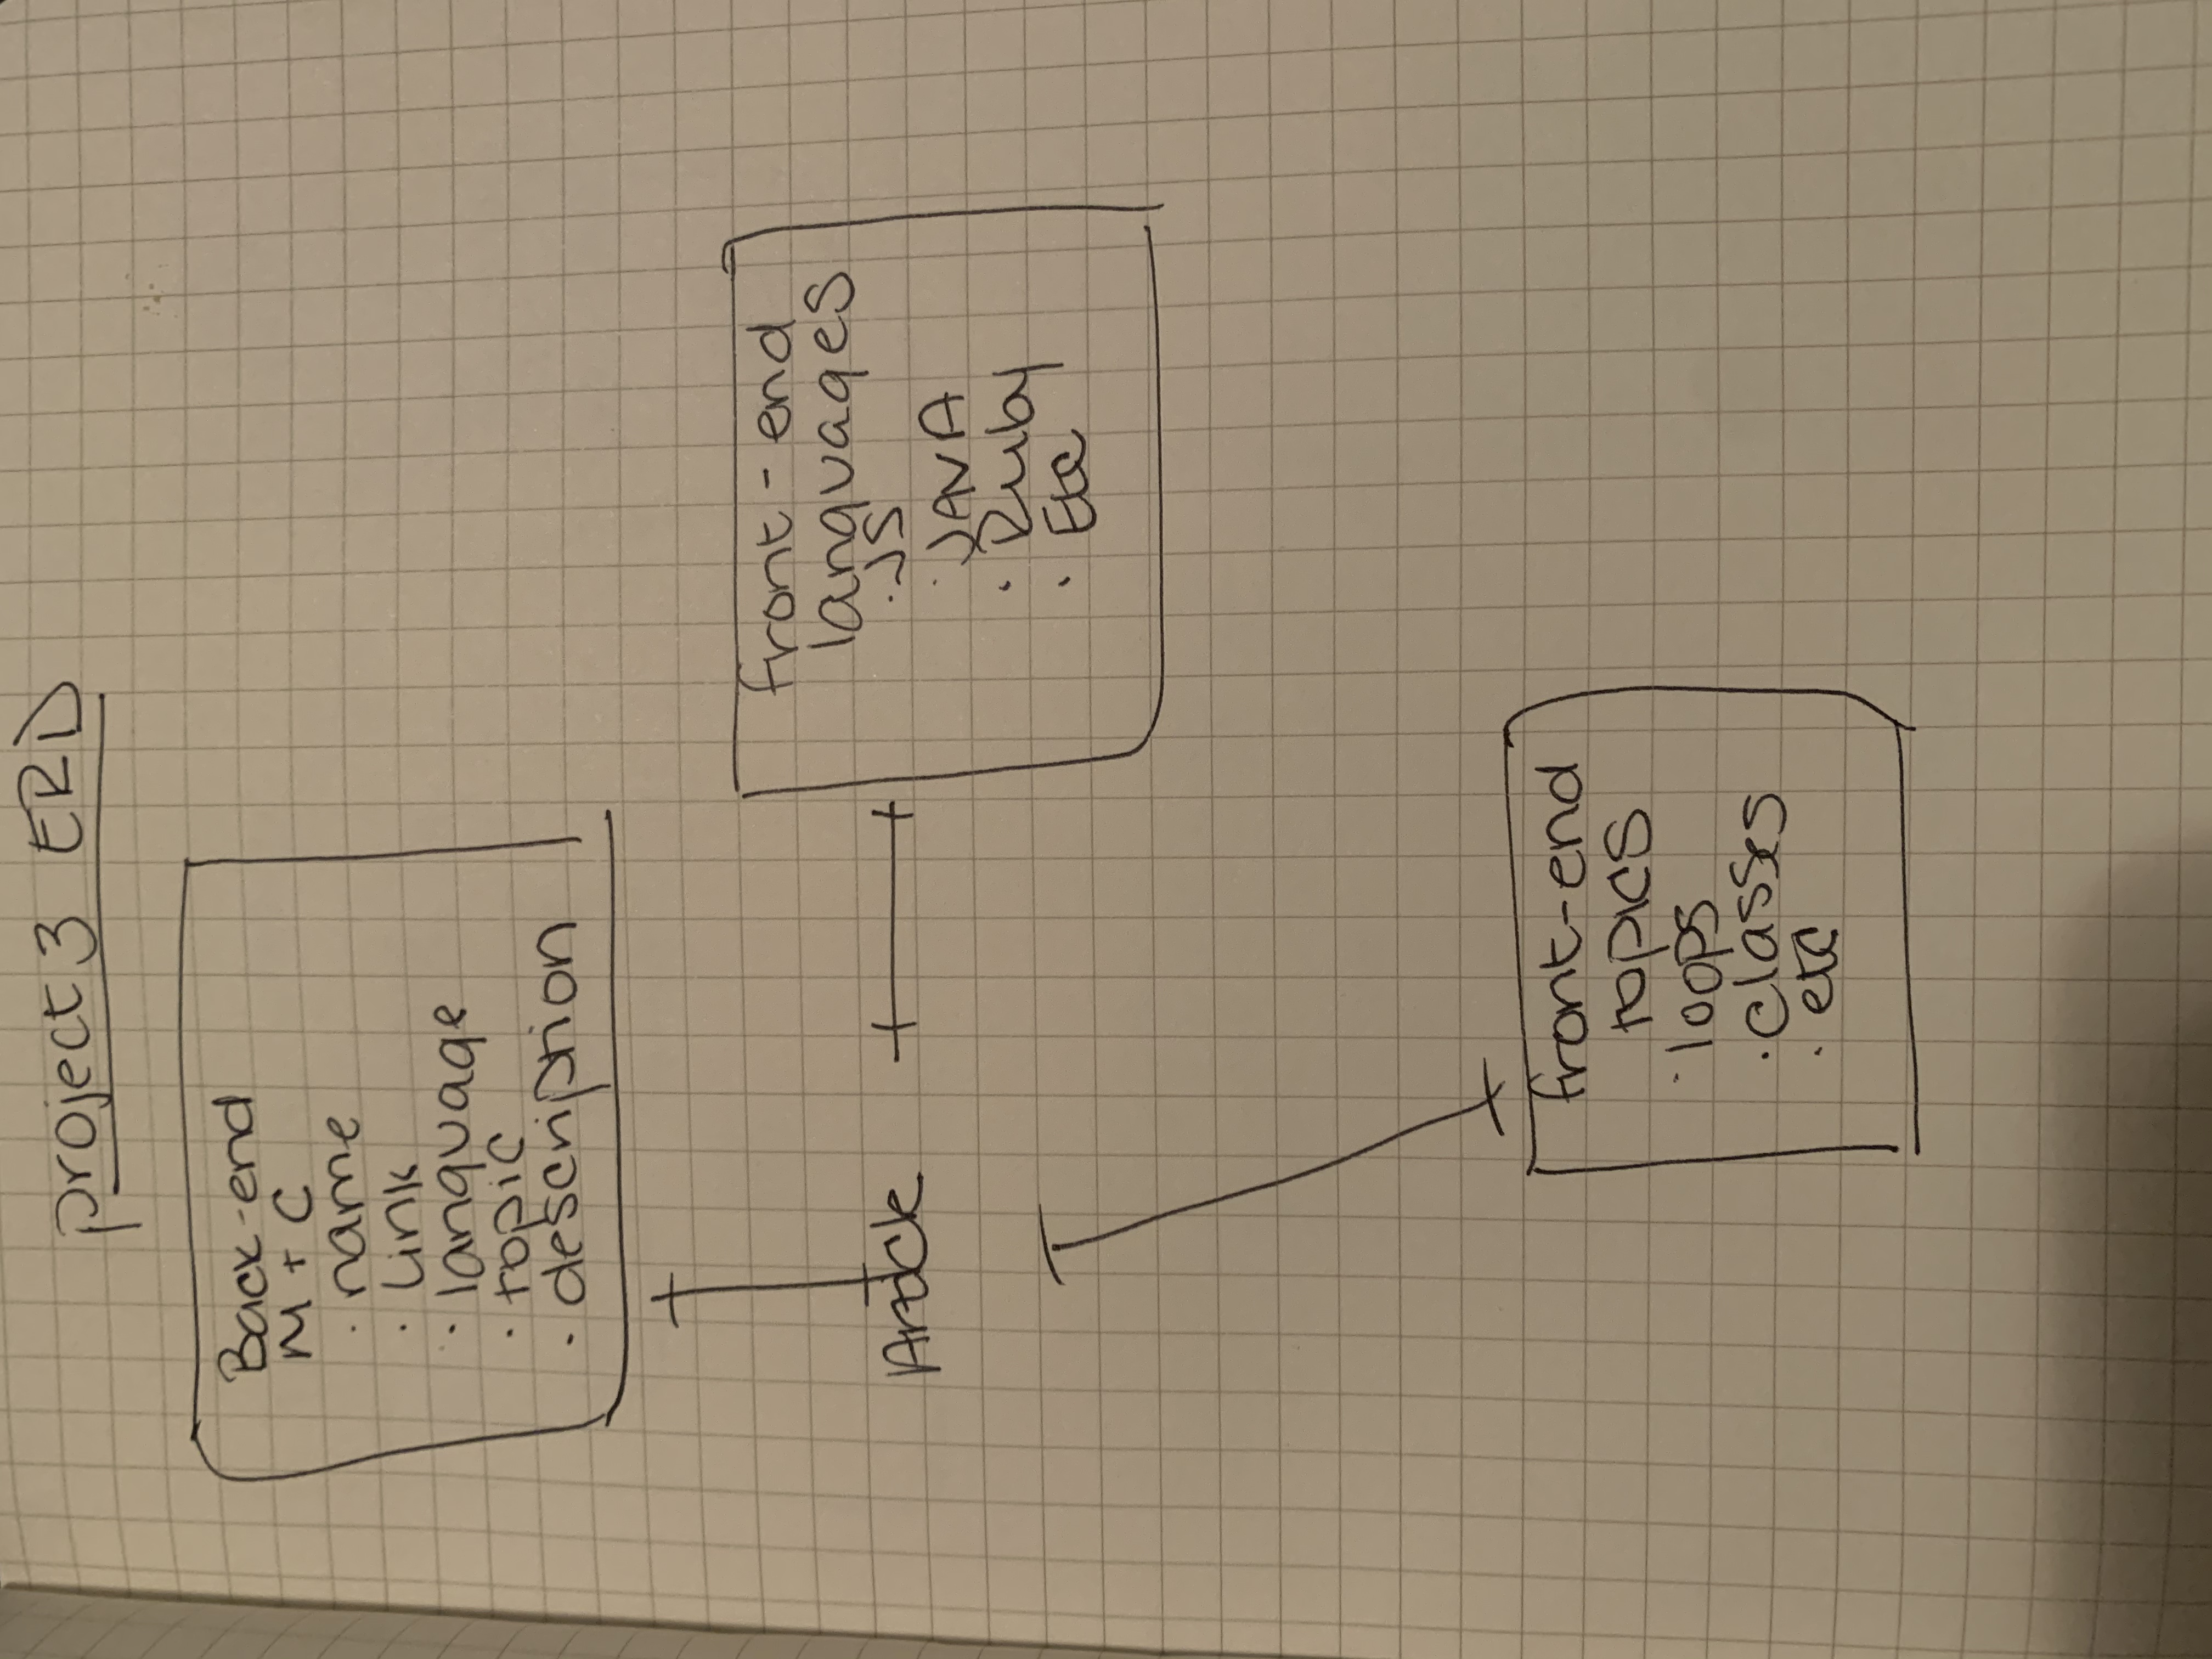 project 3 ERD
Back-end
M + C
· name
· Link
· language
· topic
· description
Article
front-end
languages
· JS
· JAVA
· Ruby
· Etc
front-end
topics
· loops
· classes
· etc